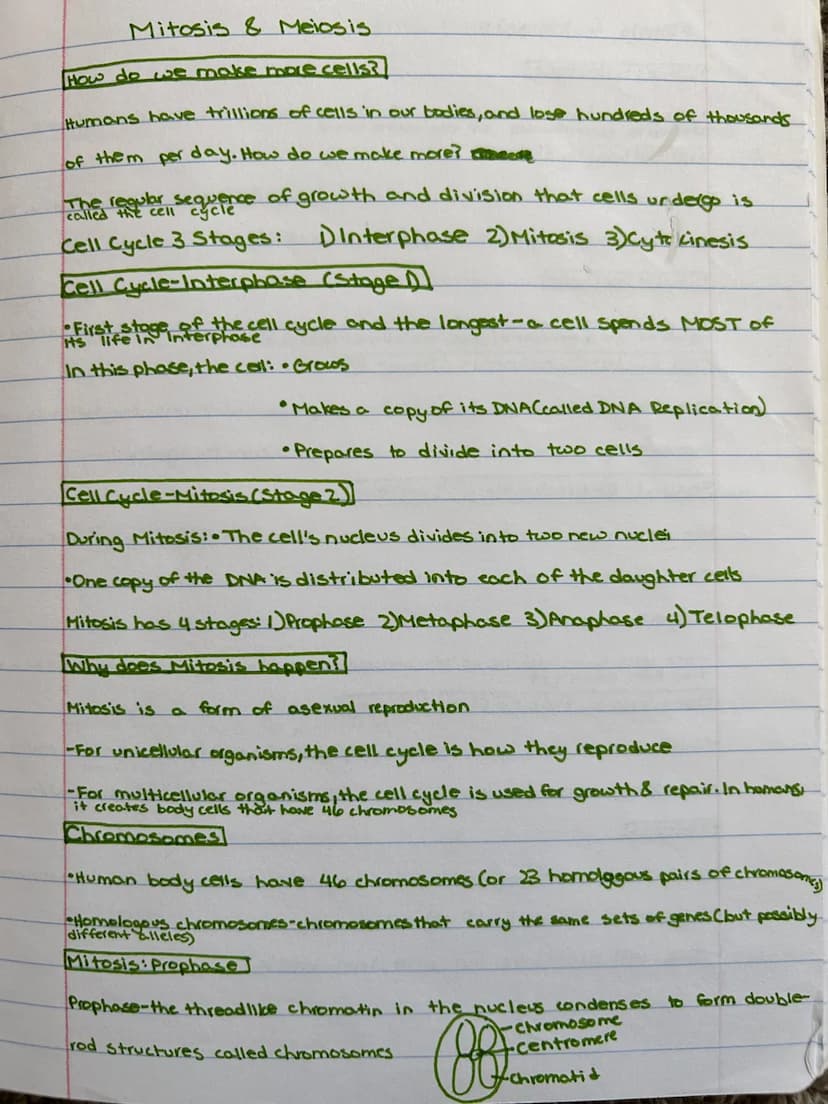 Mitosis & Meiosis
How do we make more cells?
Humans have trillions of cells in our bodies, and lose hundreds of thousands
of them per day. How do we make more?
The regular sequence of growth and division that cells undergo is
called the cell cycle
Cell Cycle 3 Stages: 1)Interphase 2)Mitosis 3)Cytokinesis
Cell Cycle-Interphase (Stage 1)
•First stage of the cell cycle and the longest-a cell spends MOST of
its life in interphase
In this phase, the cell: •Grows
•Makes a copy of its DNA(called DNA Replication)
•Prepares to divide into two cells
Cell Cycle-Mitosis(Stage 2)
During Mitosis: •The cell's nucleus divides into two new nuclei
•One copy of the DNA is distributed into each of the daughter cells
Mitosis has 4 stages: 1)Prophase 2)Metaphase 3)Anaphase 4)Telophase
Why does Mitosis happen?
Mitosis is a form of asexual reproduction
-For unicellular organisms, the cell cycle is how they reproduce
-For multicellular organisms, the cell cycle is used for growth & repair. In humans,
it creates body cells that have 46 chromosomes
Chromosomes
•Human body cells have 46 chromosomes (or 23 homologous pairs of chromosomes)
•Homologous chromosomes-chromosomes that carry the same sets of genes (but possibly
different alleles)
Mitosis: Prophase
Prophase-the threadlike chromatin in the nucleus condenses to form double-
rod structures called chromosomes
chromosome
centromere
chromatid